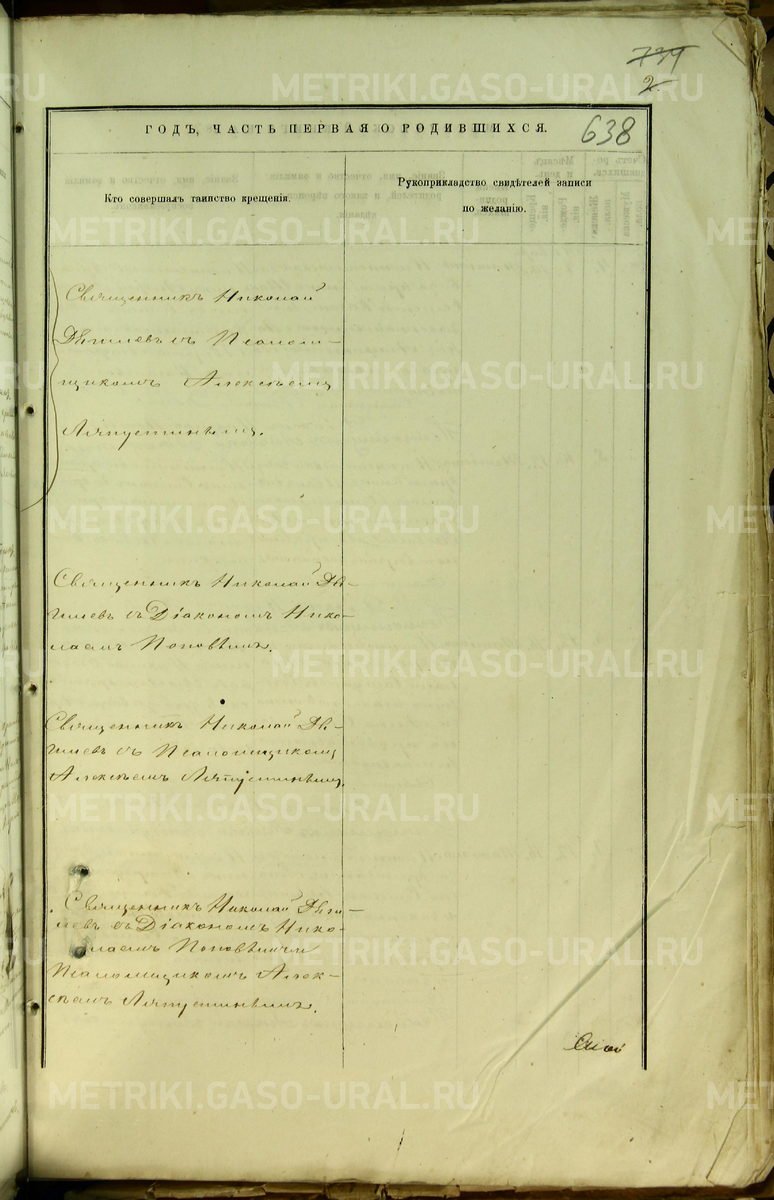 739
2
638
ГОДЪ, ЧАСТЬ ПЕРВАЯ О РОДИВШИХСЯ.
Кто совершалъ таинство крещенія.
Рукоприкладство свидѣтелей записи
по желанію.
Священникъ Николай
Дягилевъ съ Псаломщикомъ
Алексѣемъ
Ляпустинымъ.
Священникъ Николай Дя-
гилевъ съ Діакономъ Нико-
лаемъ Поповымъ.
Священникъ Николай Дя-
гилевъ съ Псаломщикомъ
Алексѣемъ Ляпустинымъ.
Священникъ Николай Дяги-
левъ съ Діакономъ Нико-
лаемъ Поповымъ и
Псаломщикомъ Алек-
сѣемъ Ляпустинымъ.
METRIKI.GASO-URAL.RU